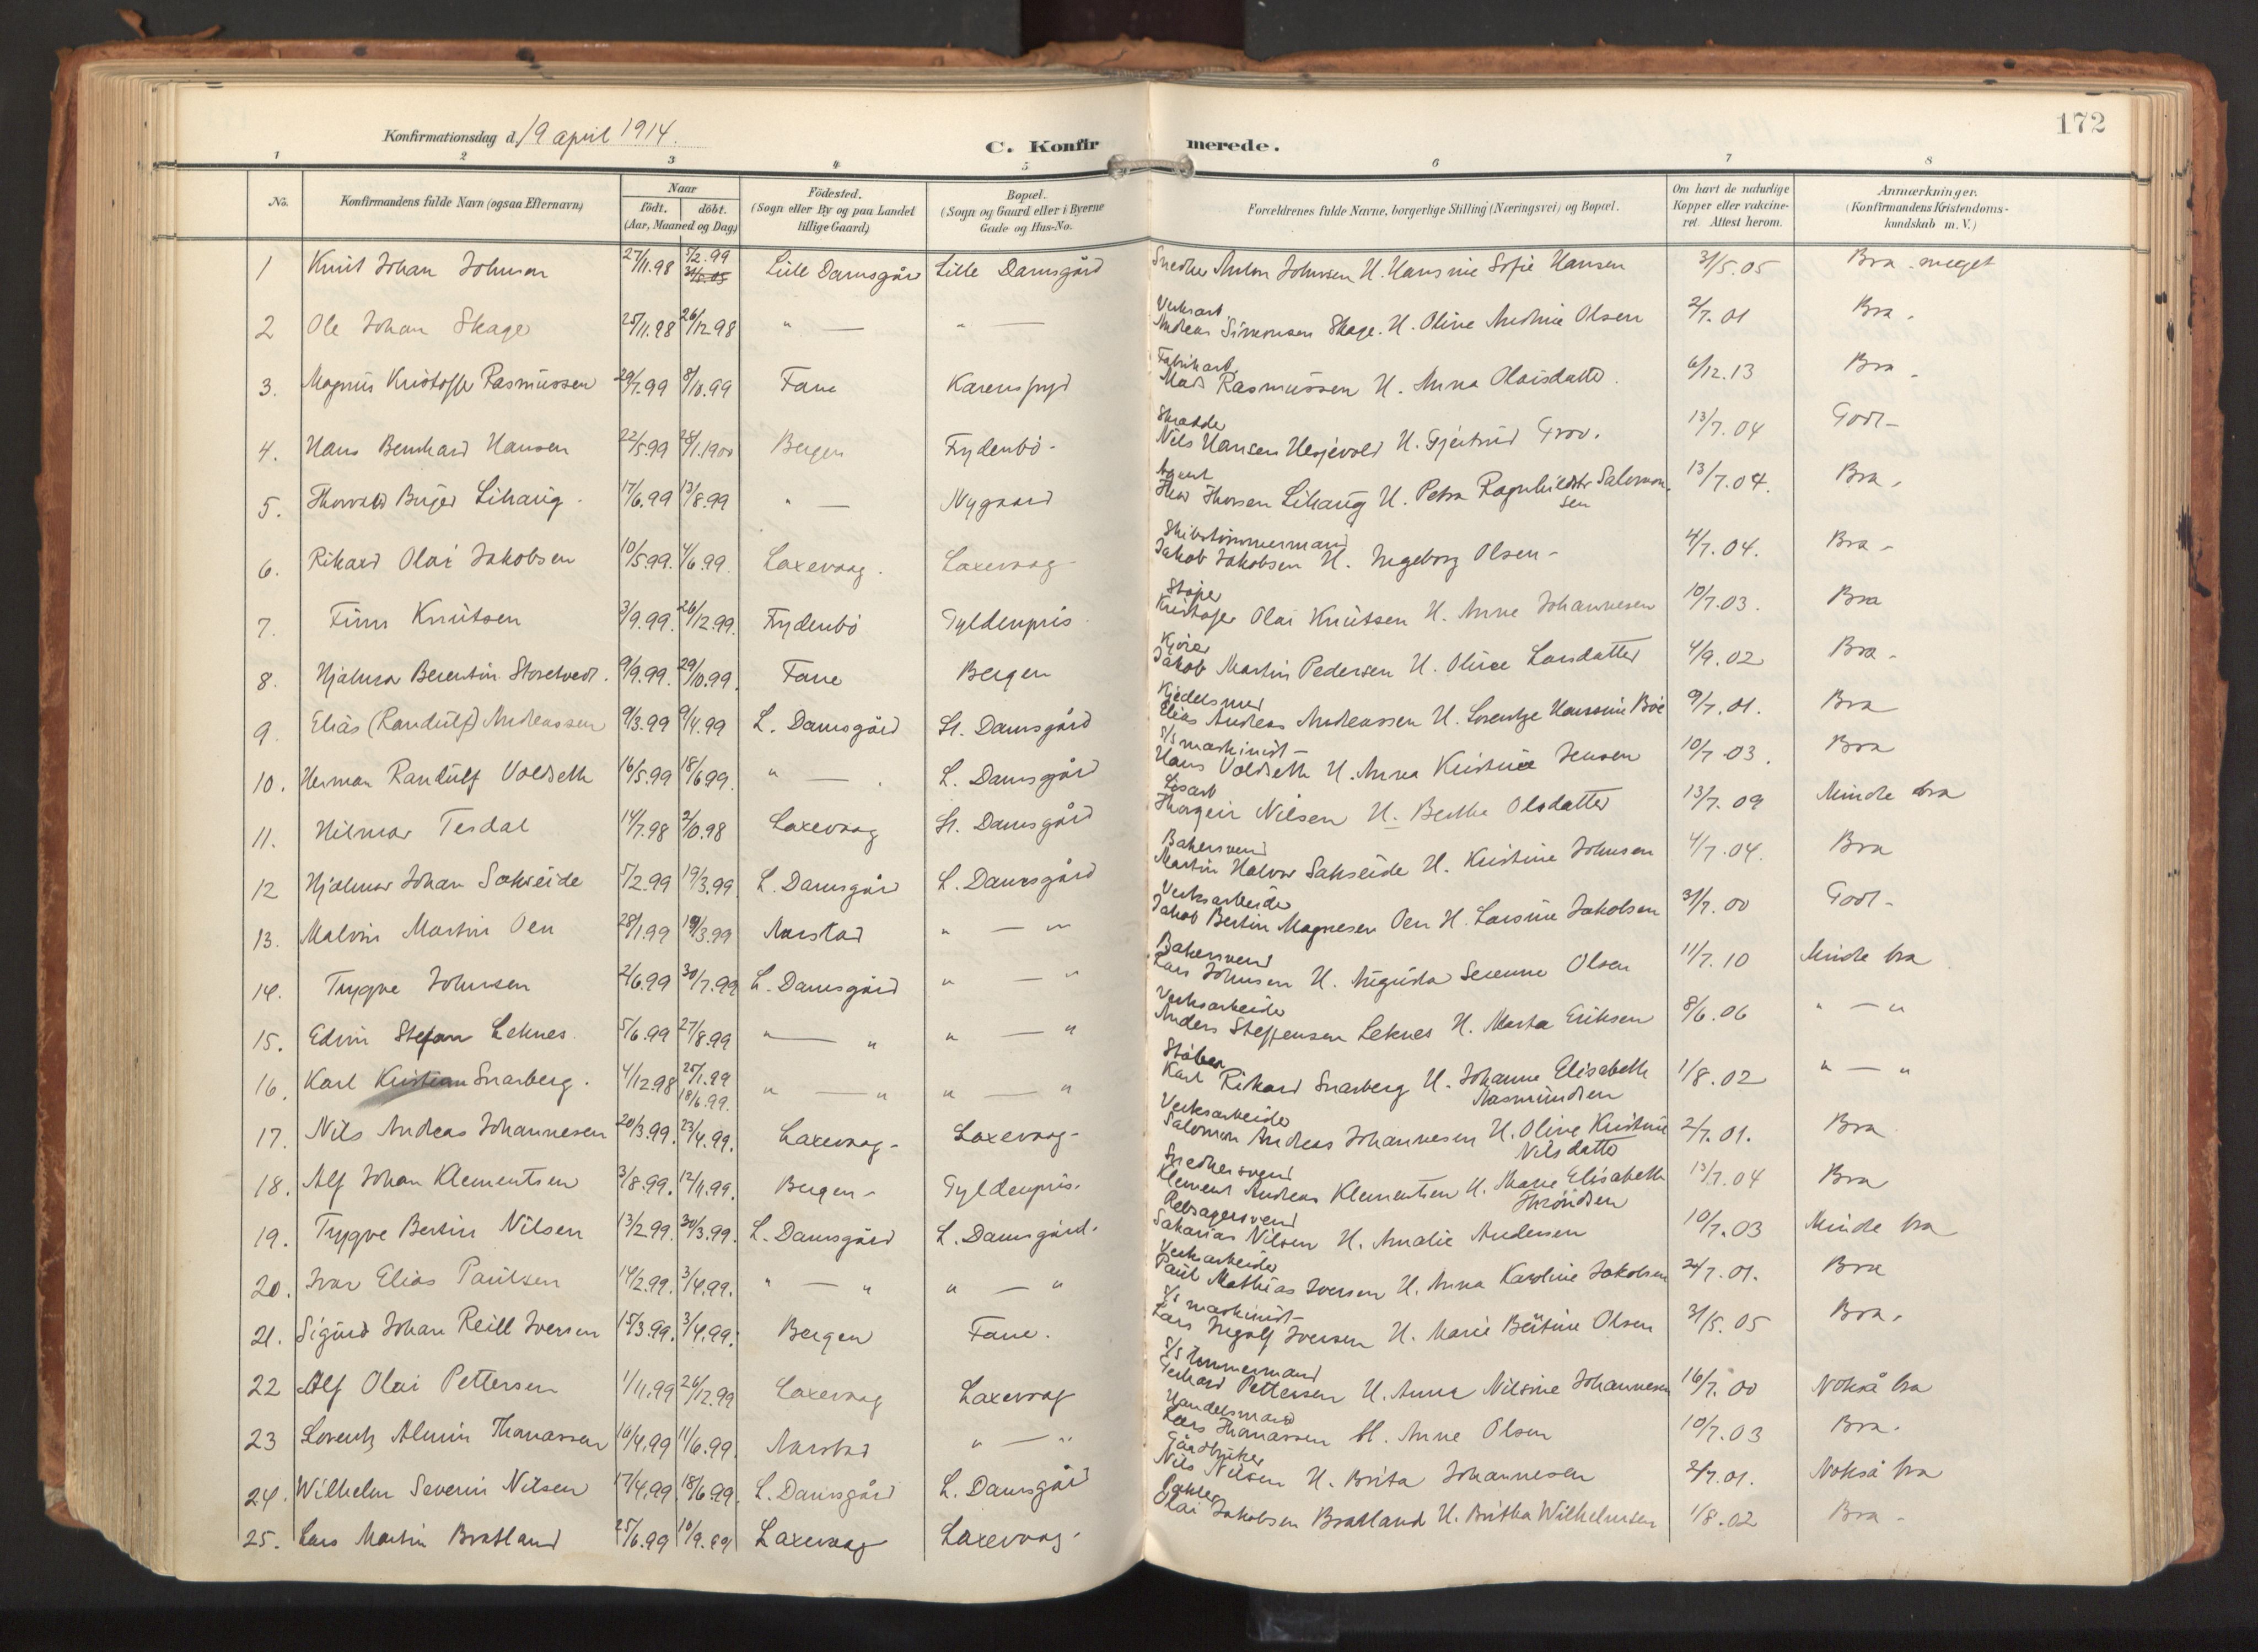 172
Konfirmationsdag d. 19 april 1914.
C. Konfirmerede.
1 2 3 4 5 6 7 8
No. Konfirmandens fulde Navn (ogsaa Efternavn) Naar født. døbt. (Aar, Maaned og Dag) Födested. (Sogn eller By og paa Landet tillige Gaard) Bopæl. (Sogn og Gaard eller i Byerne Gade og Hus-No. Forældrenes fulde Navne, borgerlige Stilling (Næringsvei) og Bopæl. Om havt de naturlige Kopper eller vakcineret. Attest herom. Anmærkninger. (Konfirmandens Kristendomskundskab m. V.)
1 Knut Johan Johnsen 27/11.98 5/2.99 31/5.05 Lille Damsgård Lille Damsgård Snedker Anton Johnsen H. Hansine Sofie Hansen 31/5.05 Bra meget
2 Ole Johan Skage 25/11.98 26/12.98 " — " — Verksarb. Andreas Simonsen Skage. H. Olive Andrine Olsen 2/7.01 Bra.
3. Magnus Kristoffer Rasmussen 29/7.99 8/10.99 Fane Karenslyd Fabrikarb. Mads Rasmussen H. Anna Olaisdatter. 6/12.13 Bra.
4. Hans Bernhard Hansen 22/5.99 28/1.1900 Bergen Frydenbö. Skrædder Nils Hansen Hesjevold H. Gjertrud Grov. 13/7.04 Godt
5. Thorvald Birger Lihaug. 17/6.99 13/8.99 " — Nygaard Agent Thor Thorsen Lihaug H. Petra Ragnhild Salomonsen 13/7.04. Bra.
6. Rikard Olai Jakobsen 10/5.99. 4/6.99. Laxevaag. Laxevaag Skibstömmermand Jakob Jakobsen H. Ingeborg Olsen 4/7.04. Bra
7. Finn Knutsen 3/9.99. 26/12.99. Frydenbö Gyldenpris Stöper Kristofer Olai Knutsen H. Anne Johannesen 10/7.03. Bra
8. Hjalmar Berentin Storetvedt. 9/9.99. 29/10.99. Fane Bergen Kjörer Jakob Martin Pedersen H. Oline Larsdatter 4/9.02 Bra
9. Elias (Randulf) Andreassen 9/3.99 9/4.99 L. Damsgård St. Damsgård Kjedelsmed Elias Andreas Andreassen H. Lorentze Hansine Böe 9/7.01. Bra
10. Herman Randulf Voldseth 16/5.99 18/6.99. " — L. Damsgård S/s maskinist Hans Voldseth H. Anna Kristine Jensen 10/7.03. Bra
11. Hilmar Tesdal 14/7.98 2/10.98 Laxevaag St. Damsgård Lösarb Thorgeir Nilsen H. Berthe Olsdatter 13/7.09 Mindre bra
12 Hjalmar Johan Sakseide 5/2.99 19/3.99. L. Damsgård L. Damsgård Bakersvend Martin Halvor Sakseide H. Kristine Johnsen 4/7.04. Bra
13. Malvin Martin Oen 28/1.99 19/3.99 Aarstad " — " Verksarbeider Jakob Bertin Magnesen Oen H. Larsine Jakobsen 31/7.00 Godt
14. Trygve Johnsen 2/6.99 30/7.99 L. Damsgård " — " Bakersvend Lars Johnsen H. Augusta Serenne Olsen 11/7.10 Mindre bra
15. Edvin Stefan Leknes. 5/6.99 27/8.99 " — " " — " Verksarbeider Anders Steffensen Leknes H. Marta Eriksen 8/6.06 " — "
16. Karl Kristian Snarberg. 4/12.98 25/1.99 18/6.99. " — " " — " Stöber Karl Rikard Snarberg H. Johanne Elisabeth Aasmundsen 1/8.02 " — "
17. Nils Andreas Johannesen 20/3.99. 23/4.99. Laxevaag Laxevaag Verksarbeider Salomon Andreas Johannesen H. Olive Kristine Nilsdatter 2/7.01. Bra
18. Alf Johan Klementsen 3/8.99. 12/11.99. Bergen Gyldenpris. Snedkersvend Klement Andreas Klementsen H. Marie Elisabeth Thröndsen 13/7.04 Bra
19. Trygve Bertin Nilsen 13/2.99. 30/3.99. L. Damsgård L. Damsgård. Rebslagersvend Sakarias Nilsen H. Amalie Andersen 10/7.03 Mindre bra
20. Ivar Elias Paulsen 14/2.99. 3/4.99. " — " " — " Verksarbeider Paul Mathias Iversen H. Anna Karoline Jakobsen 24/7.01. Bra
21. Sigurd Johan Reill Iversen 15/3.99. 3/4.99. Bergen Fane. S/s maskinist Lars Ingolf Iversen H. Marie Bertine Olsen 31/5.05 Bra.
22 Alf Olai Pettersen 1/11.99 26/12.99 Laxevaag Laxevaag S/s tömmermand Gerhard Pettersen H. Anna Nilsine Johannesen 16/7.00 Nokså bra
23 Lorentz Almin Thomassen 16/4.99 11/6.99. Aarstad " — " Handelsmand Lars Thomassen H. Anne Olsen 10/7.03 Bra.
24. Wilhelm Severin Nilsen 17/4.99. 18/6.99. L. Damsgård L. Damsgård Gårdbruker Nils Nilsen H. Brita Johannesen 2/7.01. Nokså bra
25. Lars Martin Bratland 25/6.99 10/9.99 Laxevaag Laxevaag. Olai Jakobsen Bratland H. Britha Wilhelmsen 1/8.02 Bra